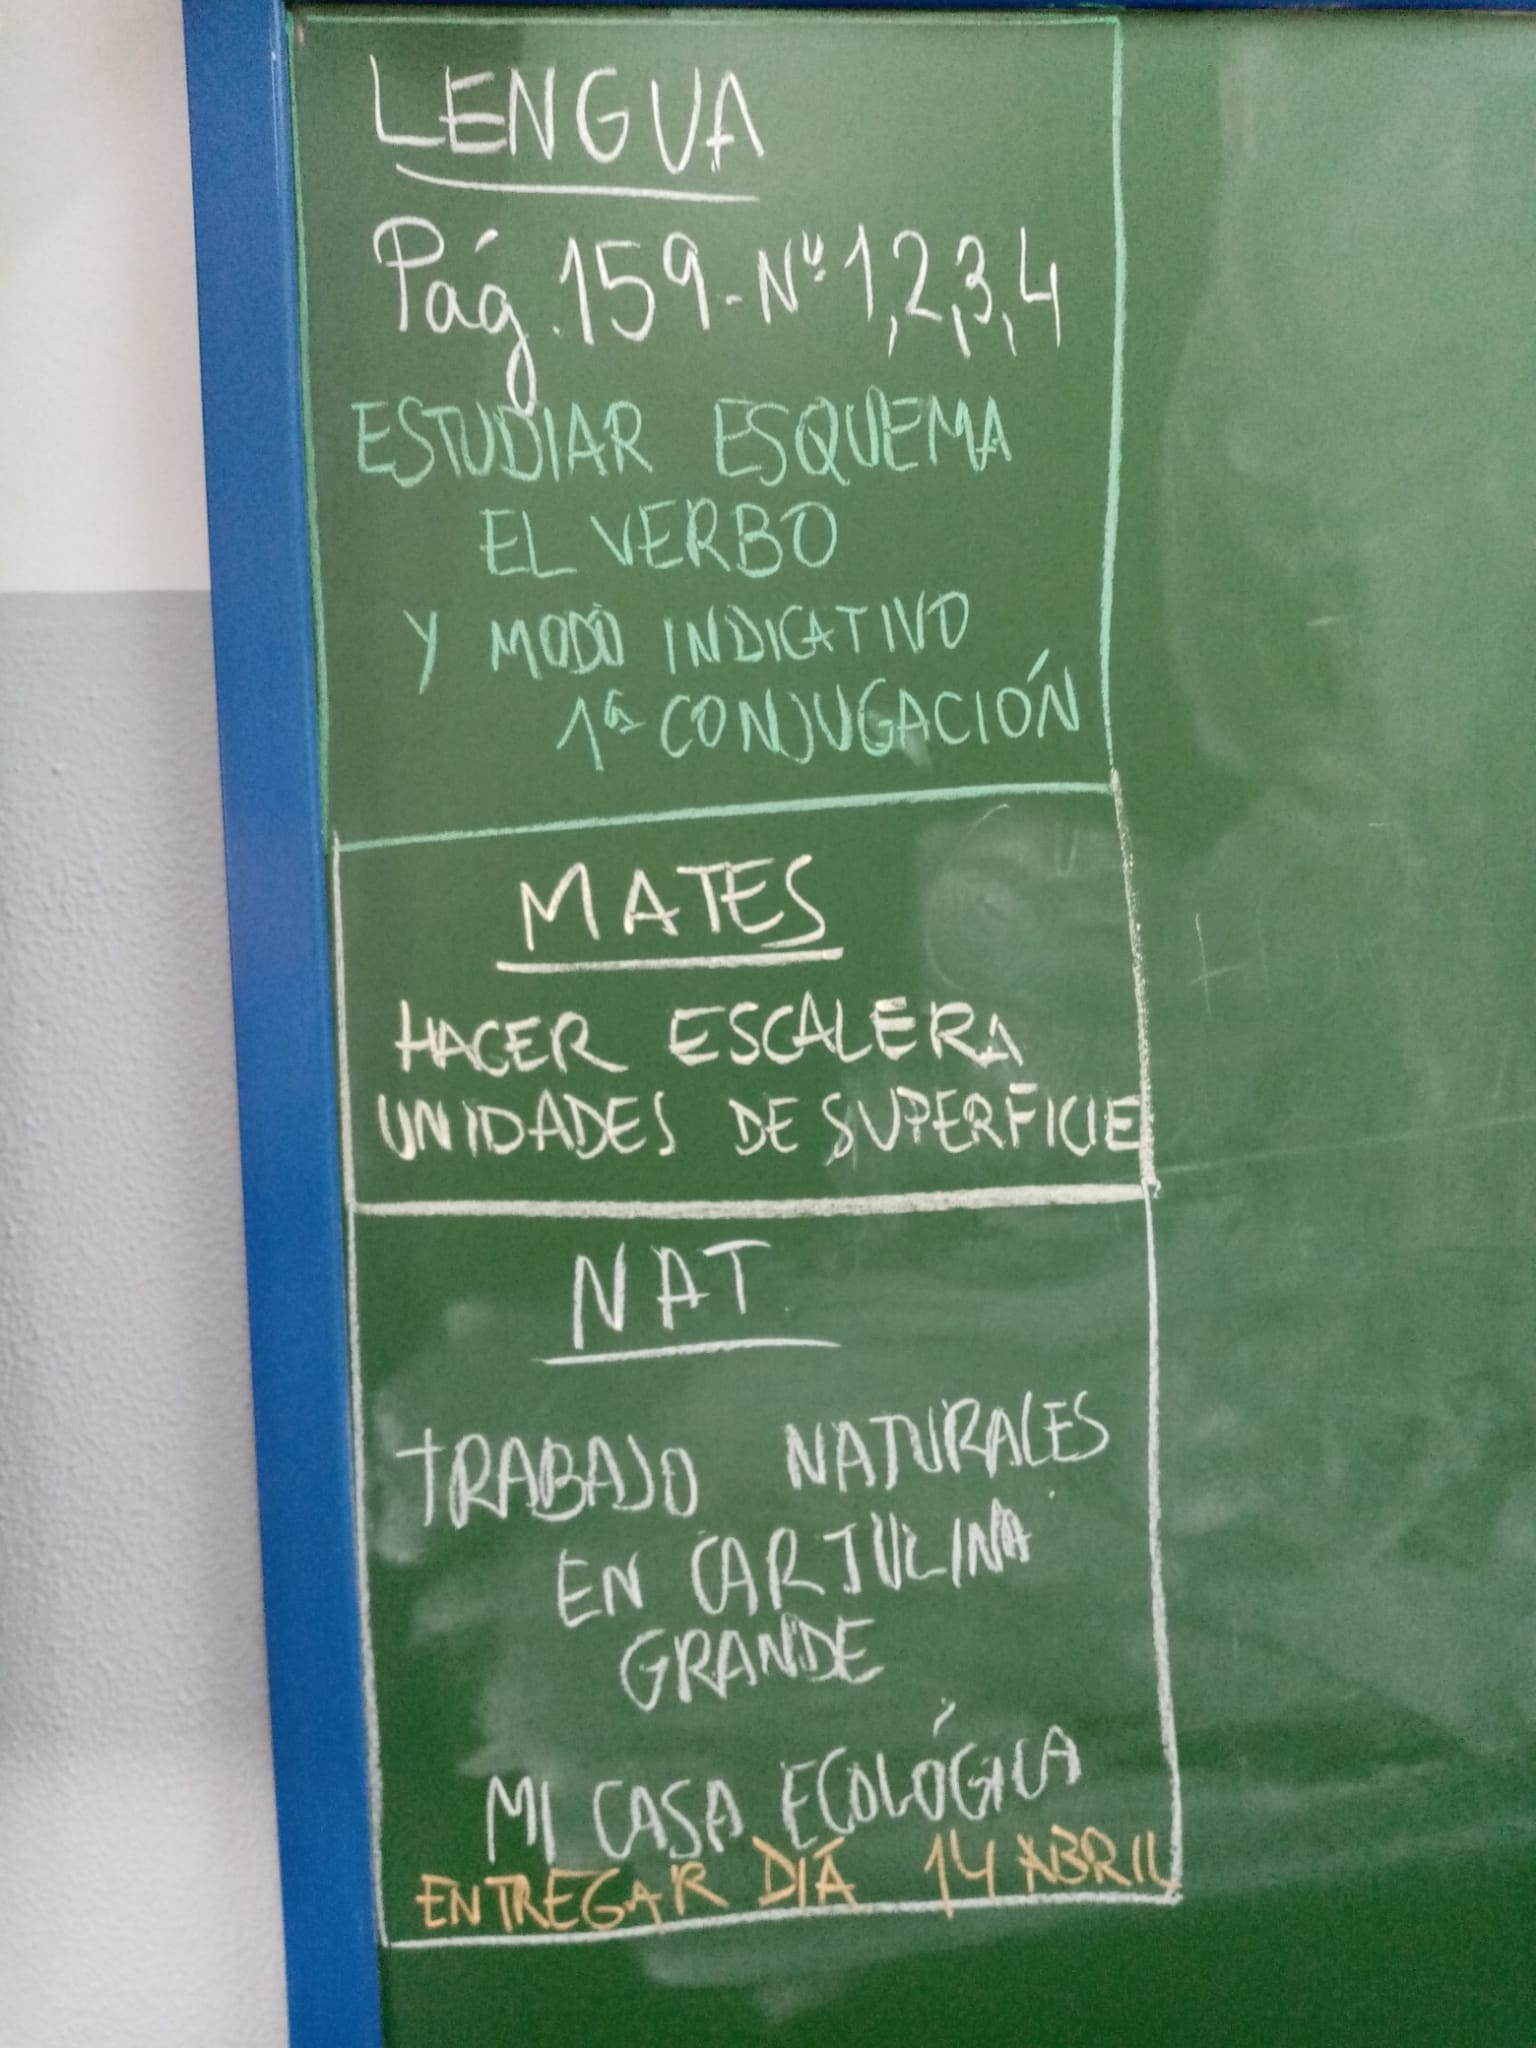 LENGUA
Pág. 159 - Nº 1, 2, 3, 4
ESTUDIAR ESQUEMA
EL VERBO
Y MODO INDICATIVO
1ª CONJUGACIÓN
MATES
HACER ESCALERA
UNIDADES DE SUPERFICIE
NAT.
TRABAJO NATURALES
EN CARTULINA
GRANDE
MI CASA ECOLÓGICA
ENTREGAR DÍA 14 ABRIL